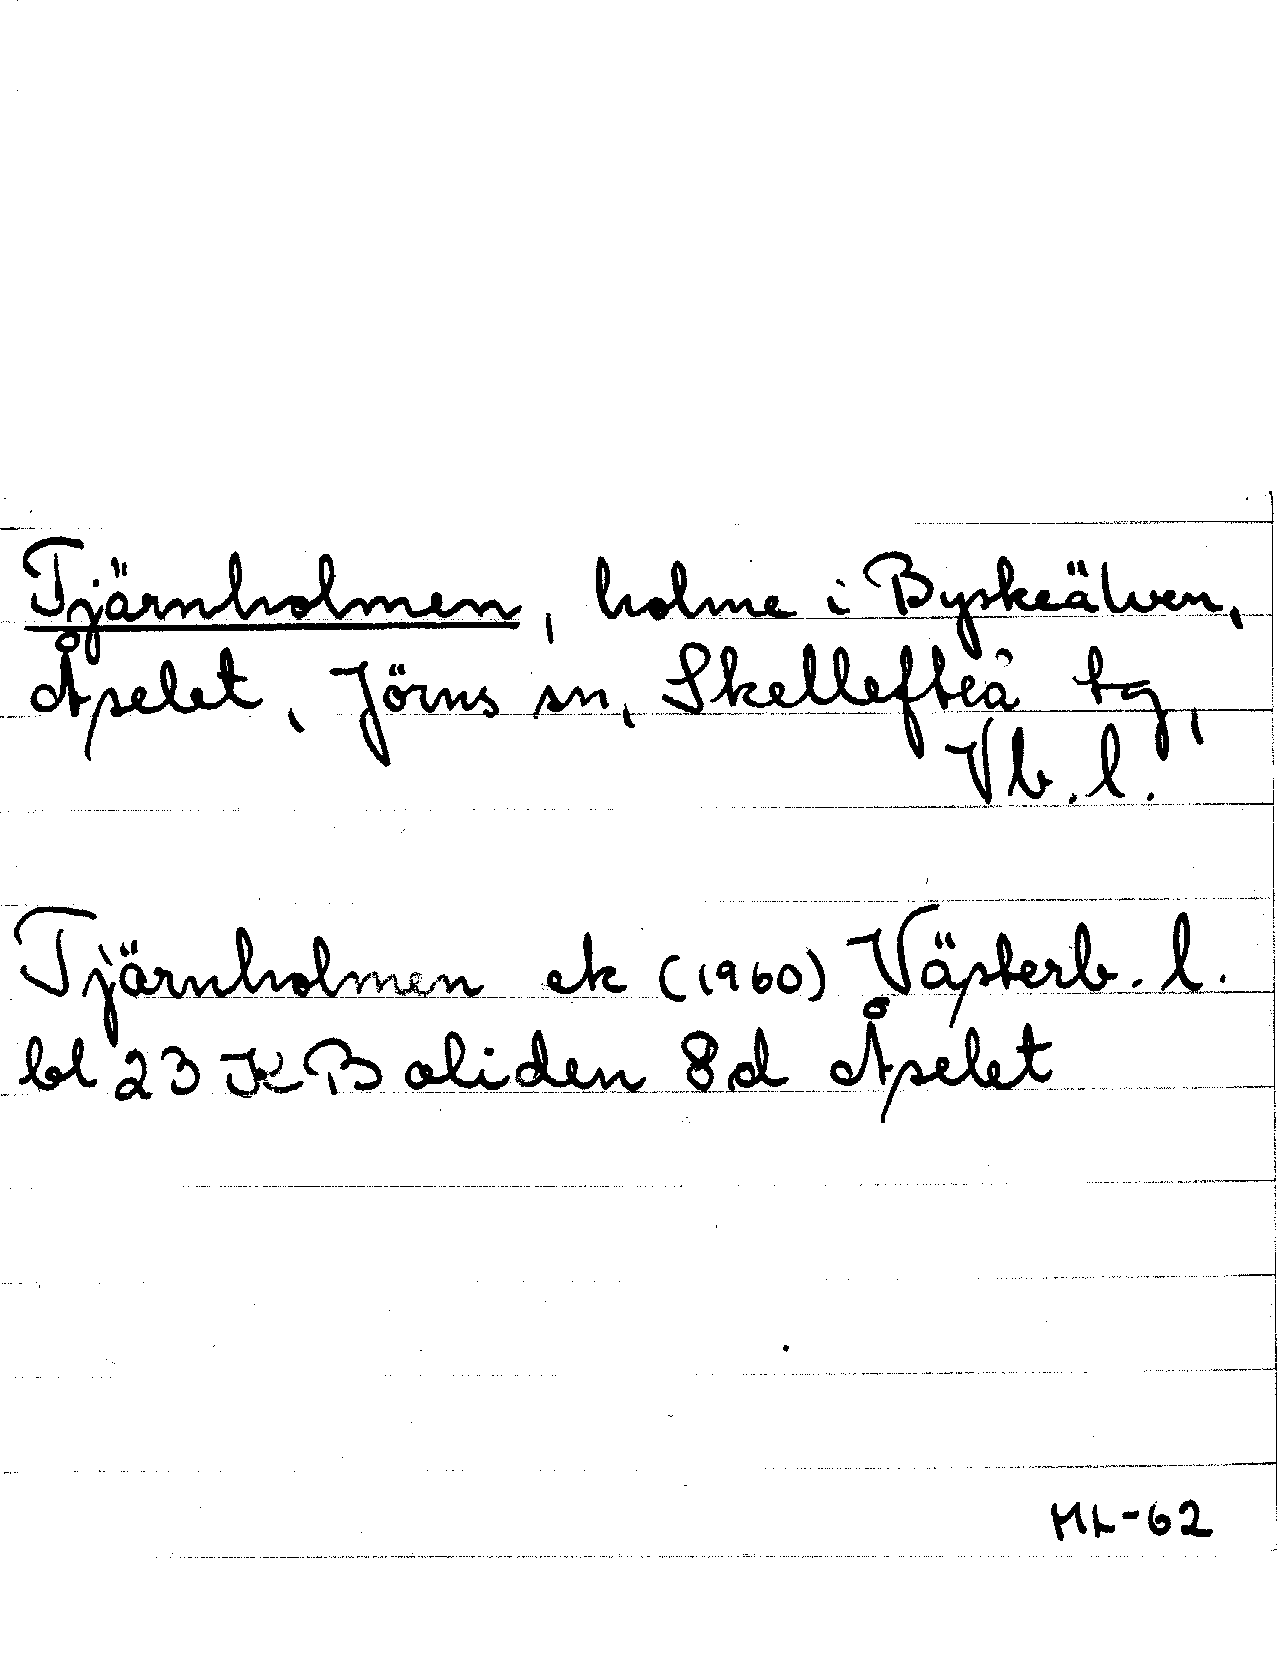 Tjärnholmen, holme i Byskeälven,
Åpelet, Jörns sn, Skellefteå tg,
Vb. l.
Tjärnholmen ek (1960) Västerb. l.
bl 23 K Boliden 8d Åpelet
ML-62